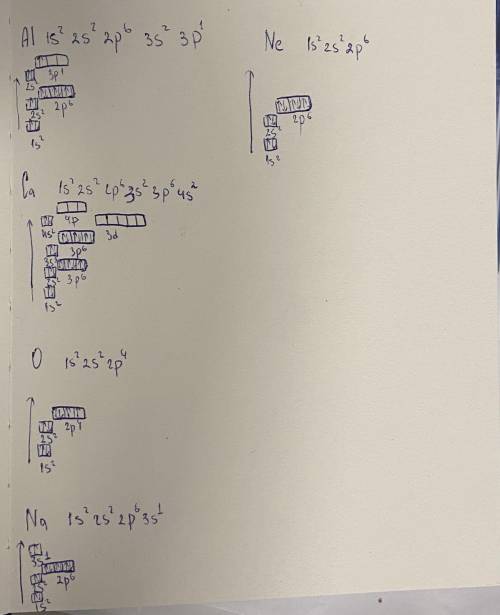 Al 1s² 2s² 2p⁶ 3s² 3p¹
3p¹
2s²
2p⁶
2s²
1s²
Ne 1s² 2s² 2p⁶
2p⁶
2s²
1s²
Ca 1s² 2s² 2p⁶ 3s² 3p⁶ 4s²
4p
4s²
3d
3p⁶
3s²
3p⁶
2s²
1s²
O 1s² 2s² 2p⁴
2p⁴
2s²
1s²
Na 1s² 2s² 2p⁶ 3s¹
3s¹
2p⁶
2s²
1s²